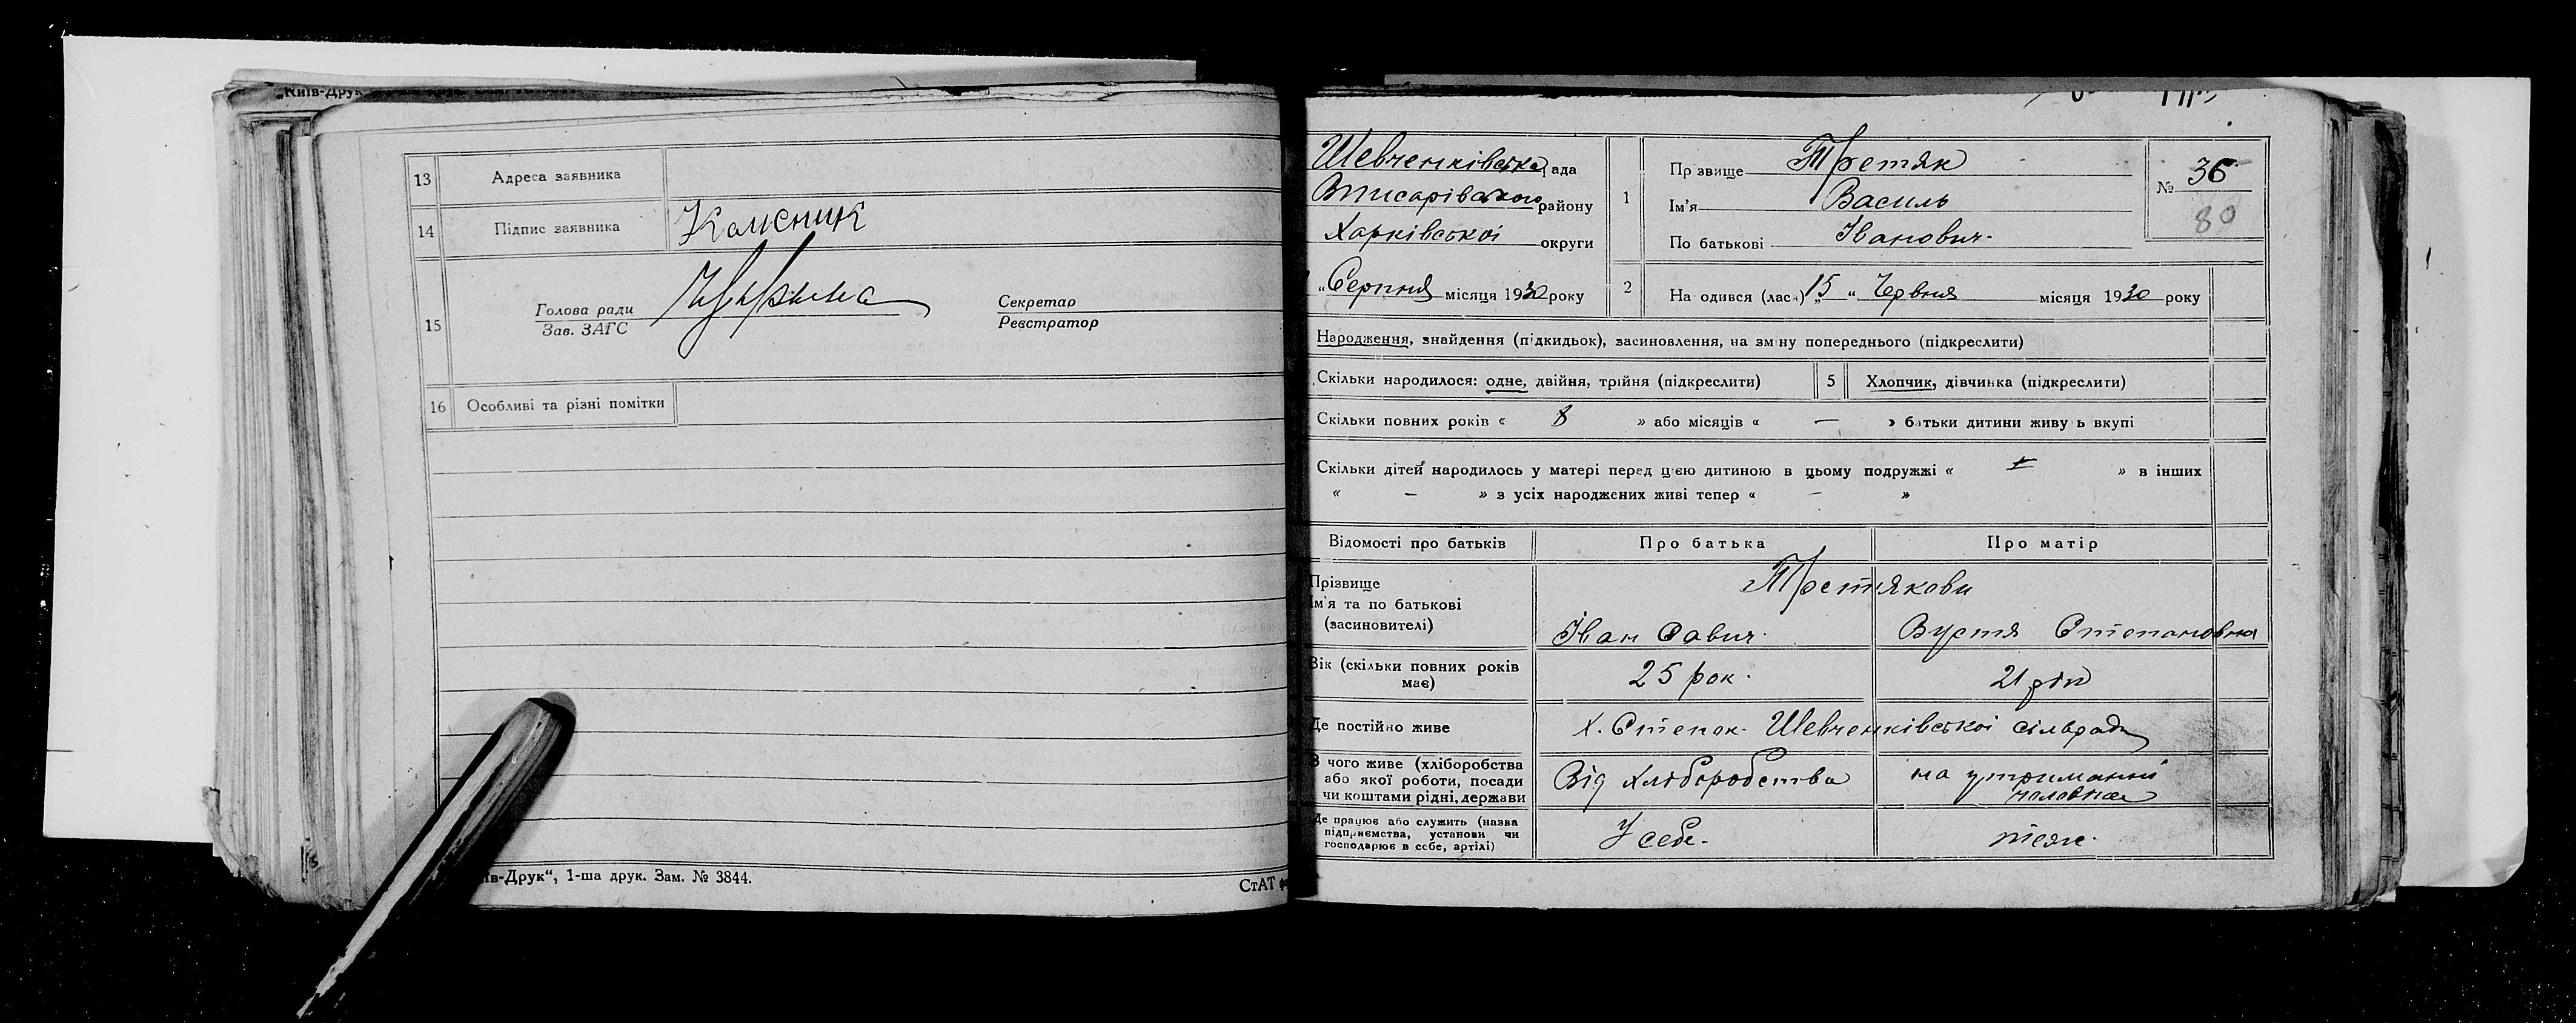 „Київ-Друк
13 Адреса заявника
14 Підпис заявника Колісник
15 Голова ради
Зав. ЗАГС
Секретар
Реєстратор
16 Особливі та різні помітки
ів-Друк“, 1-ша друк. Зам. № 3844.
СтАТ
Шевченківська рада
району
Харківської округи
„Серпня місяця 1930 року
1 Прізвище Третяк
Ім'я Василь
По батькові Іванович.
№ 36
80
2 Народився (лась) „15“ Червня місяця 1930 року
Народження, знайдення (підкидьок), засиновлення, на зміну попереднього (підкреслити)
Скільки народилося: одне, двійня, трійня (підкреслити)
5 Хлопчик, дівчинка (підкреслити)
Скільки повних років « 8 » або місяців « — » батьки дитини живуть вкупі
Скільки дітей народилось у матері перед цією дитиною в цьому подружжі « » в інших
« – » з усіх народжених живі тепер « – »
Відомості про батьків
Про батька
Про матір
Прізвище
Ім'я та по батькові
(засиновителі)
Третякови
Іван Савич.
Вустя Степановна
Вік (скільки повних років
має)
25 рок.
21 рік
Де постійно живе
Х. Степок. Шевченківської сільради
З чого живе (хліборобства
або якої роботи, посади
чи коштами рідні, держави
Від хліборобства
на утриманні
чоловіка
Де працює або служить (назва
підприємства, установи чи
господарює в себе, артілі)
У себе.
теж.